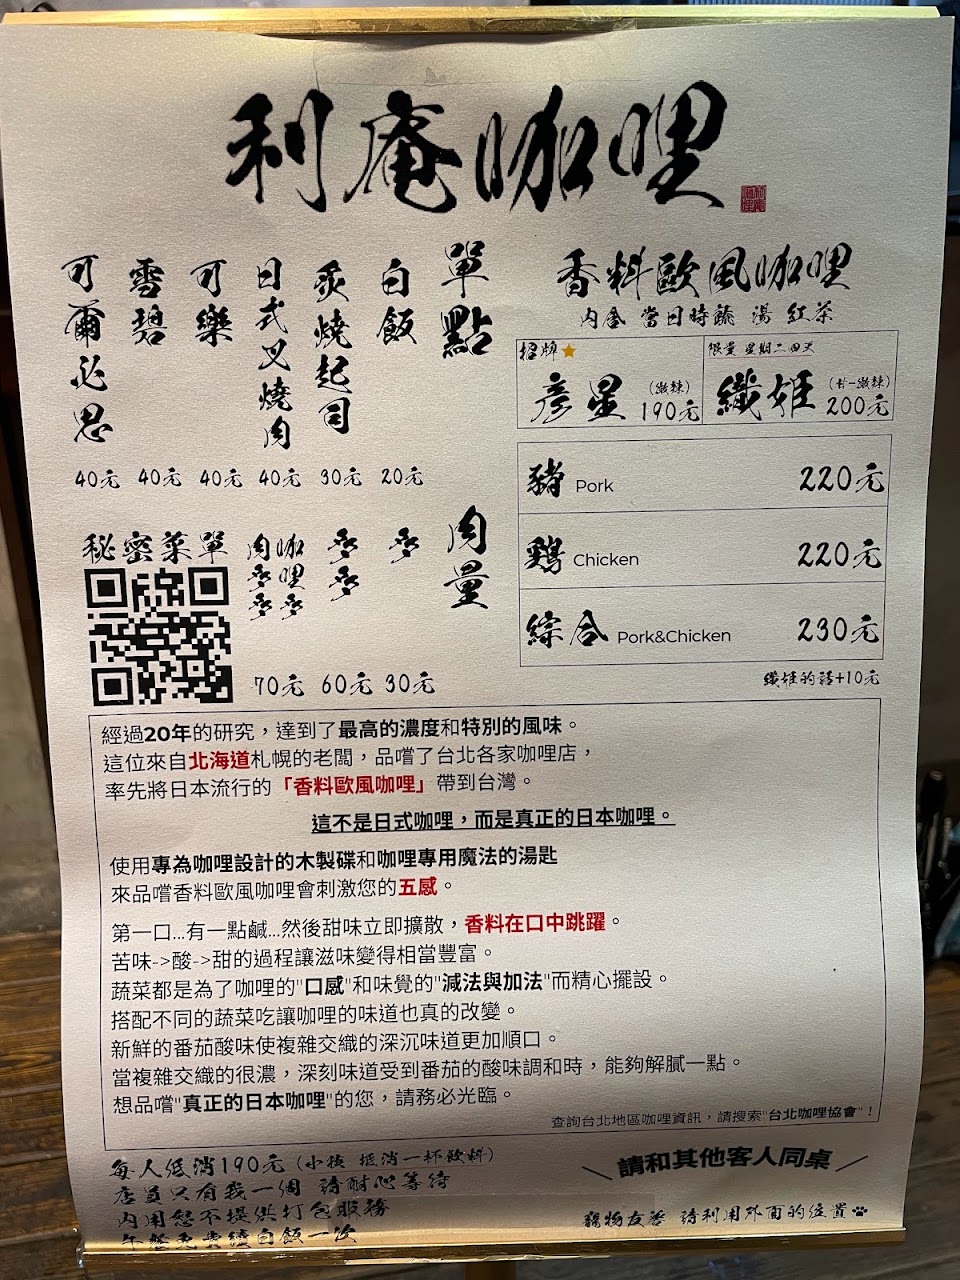 利庵咖哩
香料歐風咖哩
內含 當日時蔬 湯 紅茶
招牌
彥星 (微辣) 190元
限量 星期二四天
織姬 (甘-微辣) 200元
豬 Pork 220元
鷄 Chicken 220元
綜合 Pork&Chicken 230元
織姬的話+10元
單點
白飯 20元
炙燒起司 30元
日式叉燒肉 40元
可樂 40元
雪碧 40元
可爾必思 40元
肉量
多 30元
多多 60元
咖哩多 肉多多 70元
秘密菜單
經過20年的研究，達到了最高的濃度和特別的風味。
這位來自北海道札幌的老闆，品嚐了台北各家咖哩店，
率先將日本流行的「香料歐風咖哩」帶到台灣。
這不是日式咖哩，而是真正的日本咖哩。
使用專為咖哩設計的木製碟和咖哩專用魔法的湯匙
來品嚐香料歐風咖哩會刺激您的五感。
第一口...有一點鹹...然後甜味立即擴散，香料在口中跳躍。
苦味->酸->甜的過程讓滋味變得相當豐富。
蔬菜都是為了咖哩的"口感"和味覺的"減法與加法"而精心擺設。
搭配不同的蔬菜吃讓咖哩的味道也真的改變。
新鮮的番茄酸味使複雜交織的深沉味道更加順口。
當複雜交織的很濃，深刻味道受到番茄的酸味調和時，能夠解膩一點。
想品嚐"真正的日本咖哩"的您，請務必光臨。
查詢台北地區咖哩資訊，請搜索"台北咖哩協會"！
每人低消190元（小孩 抵消一杯飲料）
店員只有我一個 請耐心等待
內用恕不提供打包服務
午餐免費續白飯一次
請和其他客人同桌
寵物友善 請利用外面的位置